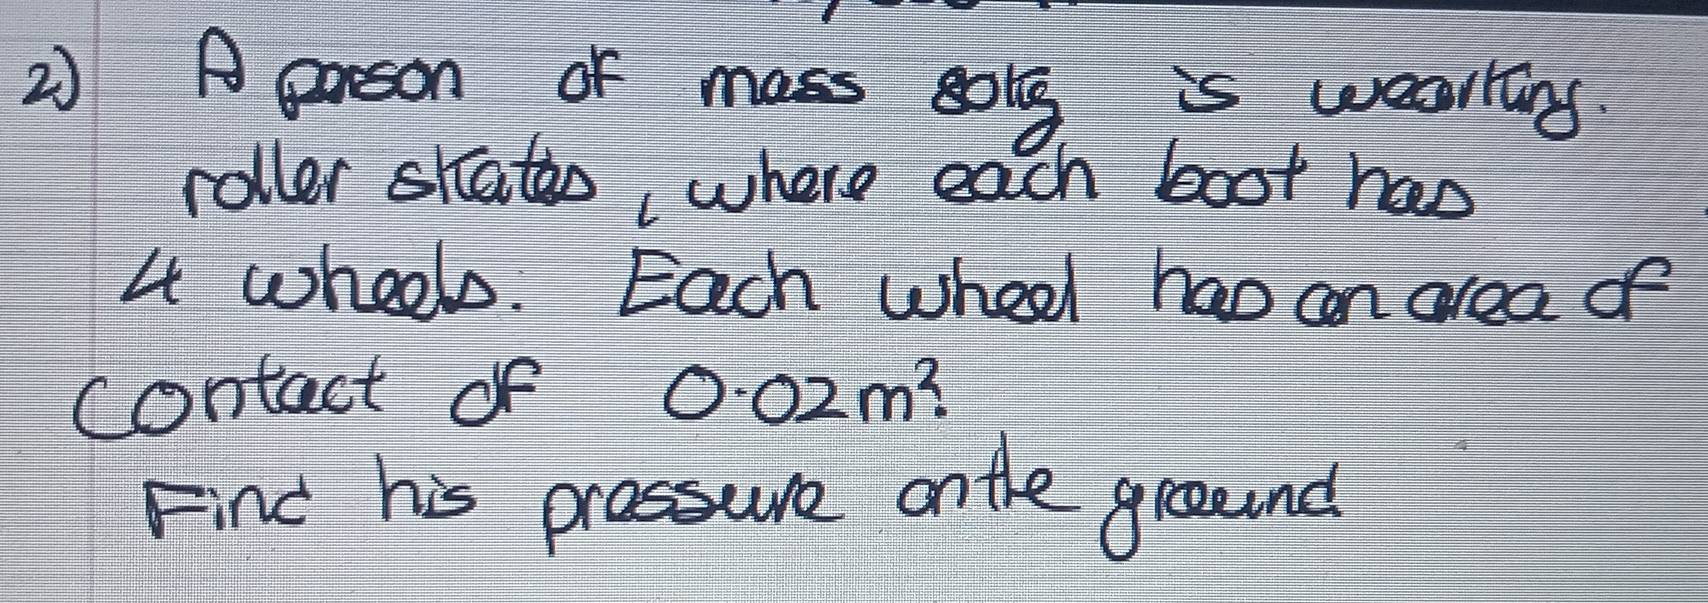 2) A person of mass kg is wearing.
roller skates, where each boot has
4 wheels. Each wheel has an area of
contact of 0.02m².
Find his pressure on the ground